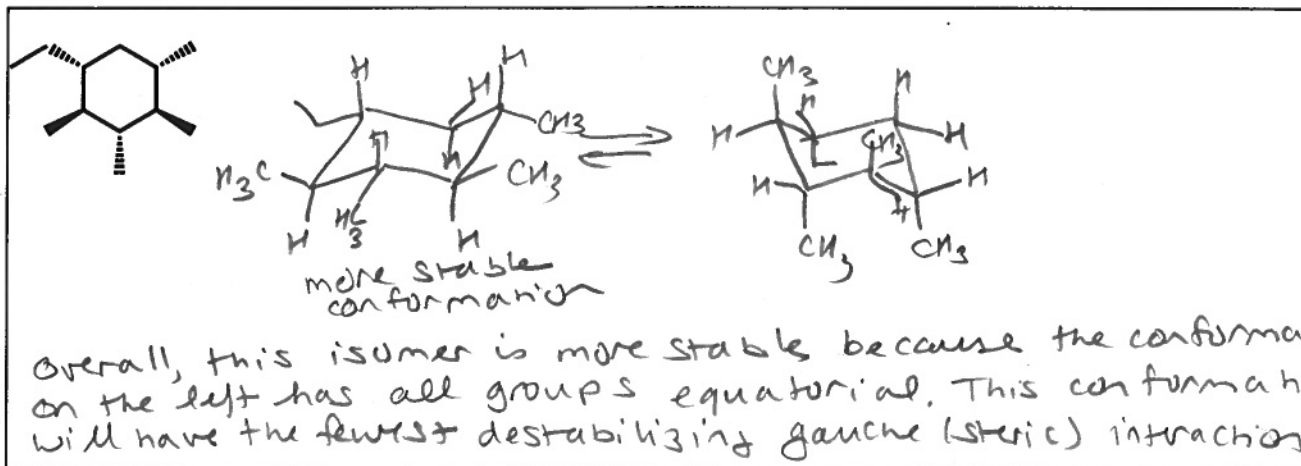 H
H
H
CH3
H
H
H3C
CH3
H3C
H
H
more stable
conformation
CH3
H
H
H
H
CH3
H
H
H
CH3
CH3
overall, this isomer is more stable because the conforma
on the left has all groups equatorial. This conformati
will have the fewest destabilizing gauche (steric) interaction